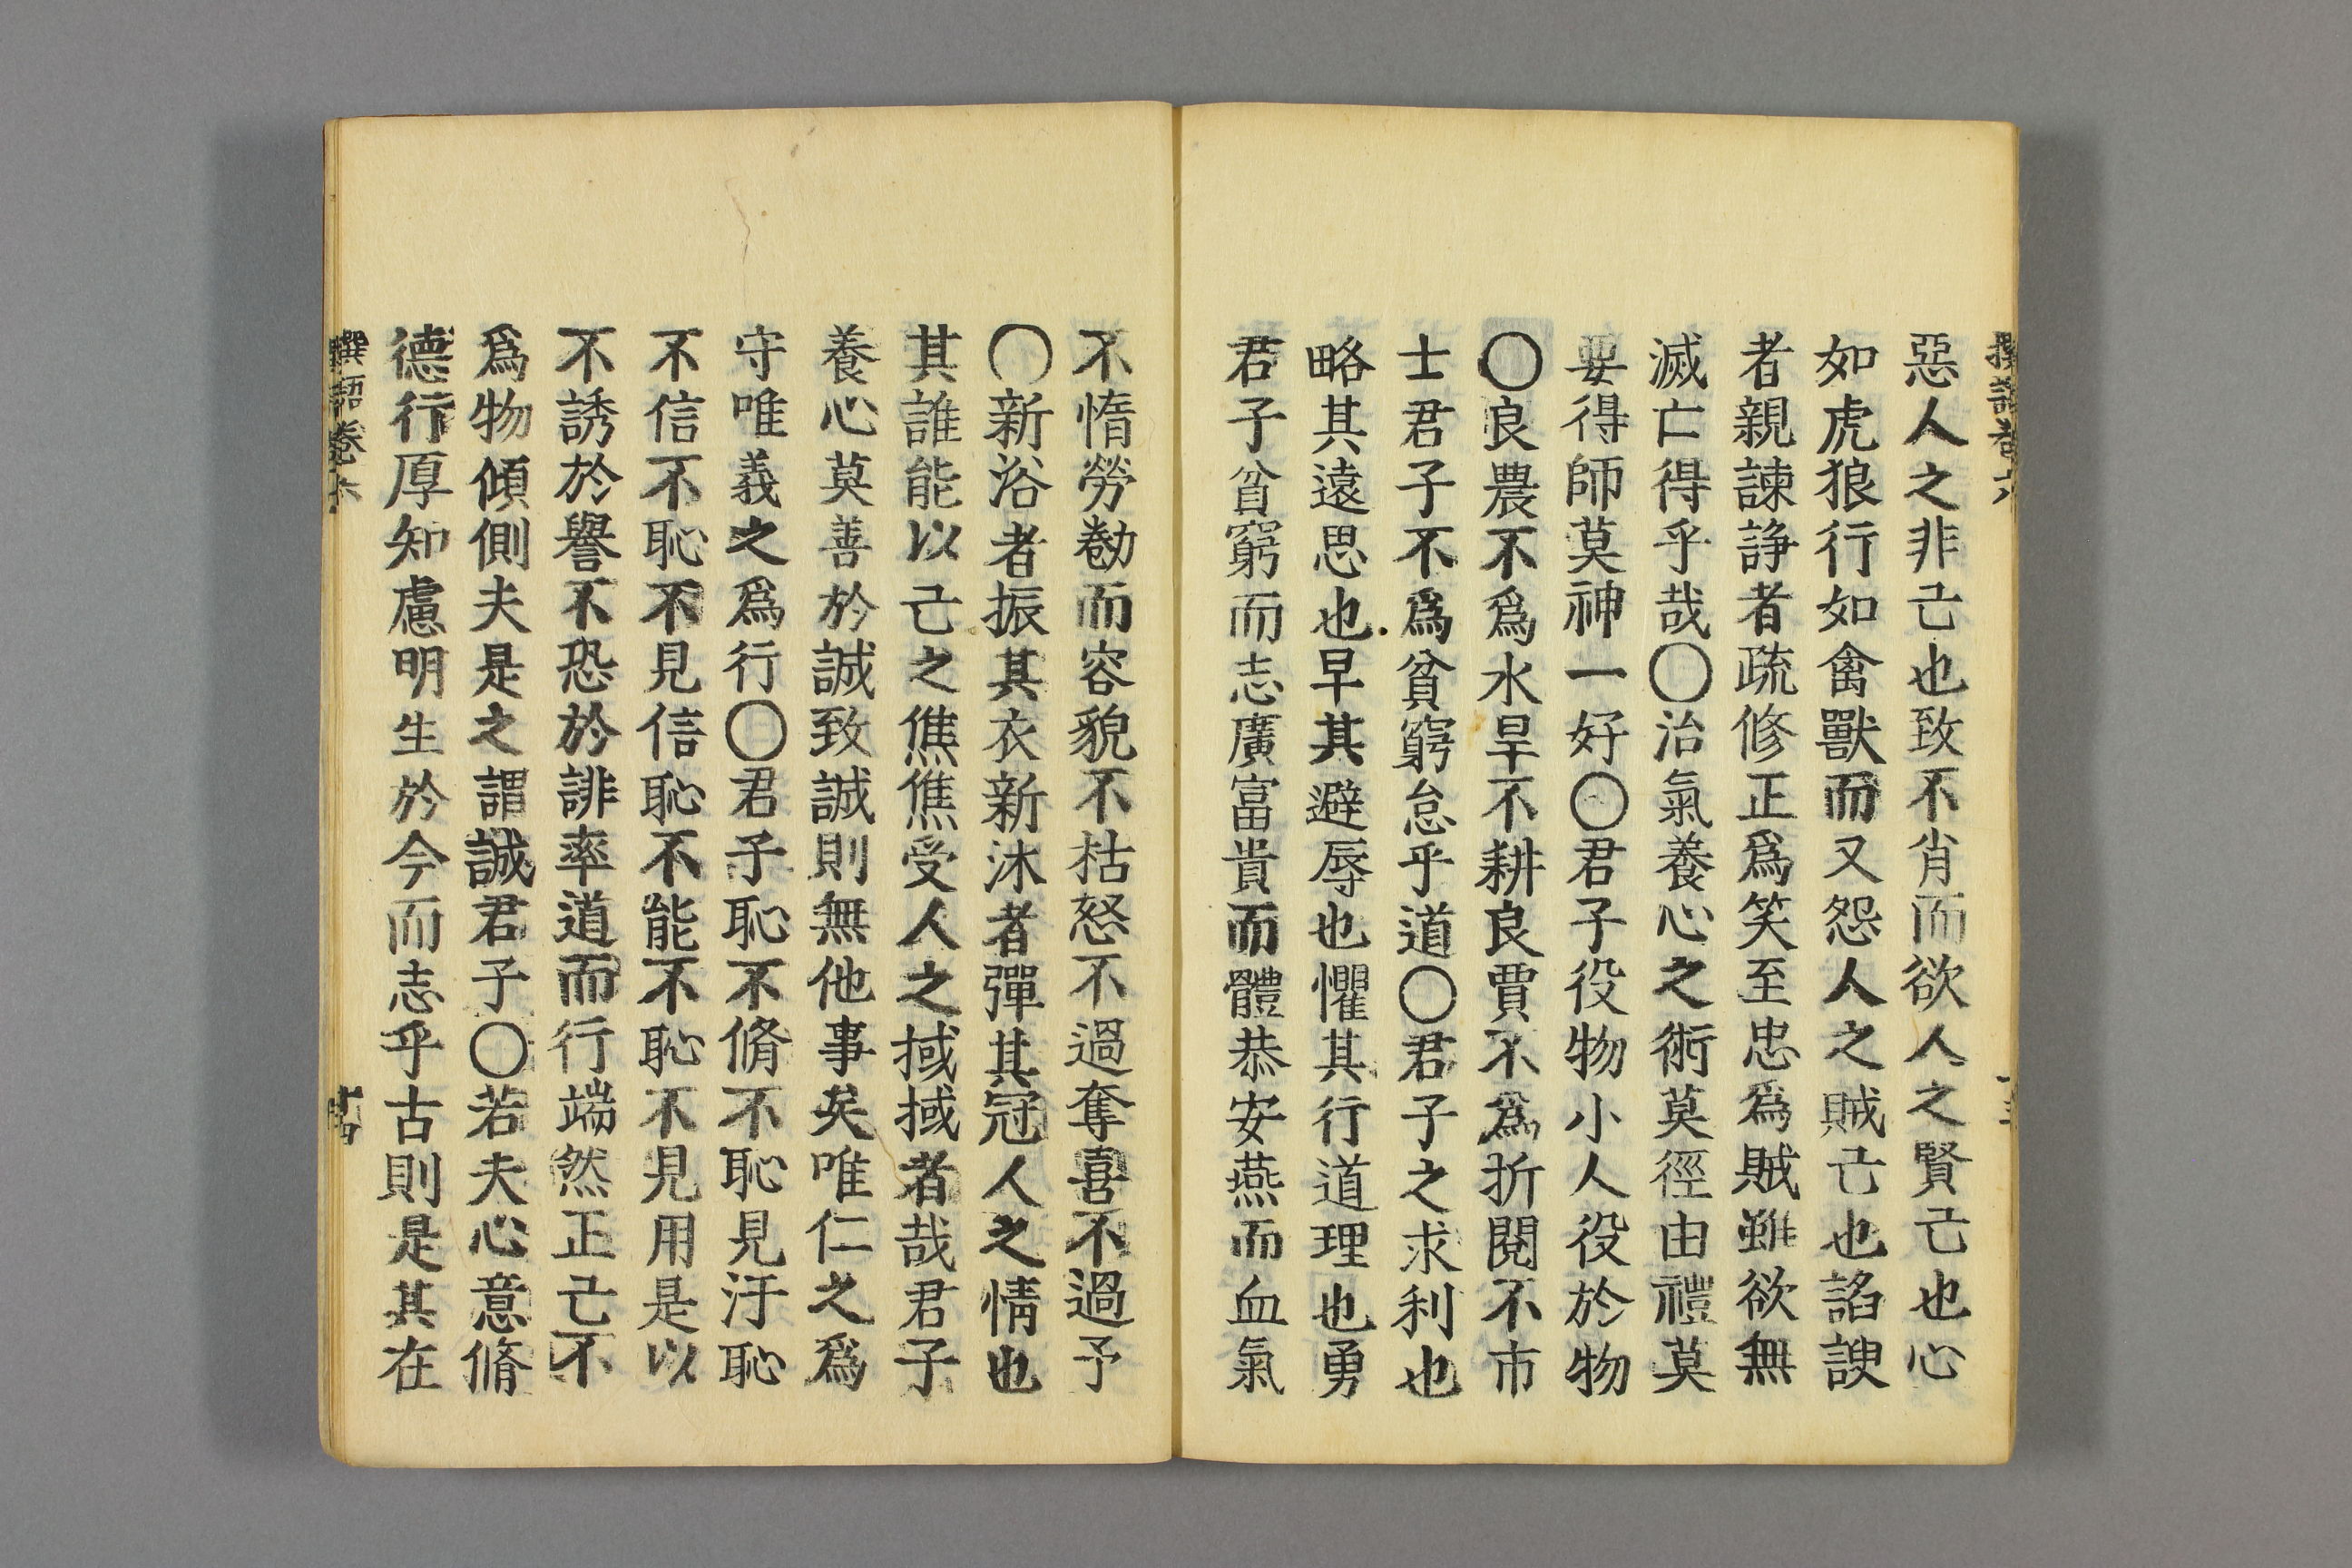 惡人之非己也致不肖而欲人之賢己也心
如虎狼行如禽獸而又怨人之賊己也諂諛
者親諫諍者疏修正爲笑至忠爲賊雖欲無
滅亡得乎哉〇治氣養心之術莫徑由禮莫
要得師莫神一好〇君子役物小人役於物
〇良農不爲水旱不耕良賈不爲折閱不市
士君子不爲貧窮怠乎道〇君子之求利也
略其遠思也早其避辱也懼其行道理也勇
君子貧窮而志廣富貴而體恭安燕而血氣
不惰勞勌而容貌不枯怒不過奪喜不過予
〇新浴者振其衣新沐者彈其冠人之情也
其誰能以己之僬僬受人之掝掝者哉君子
養心莫善於誠致誠則無他事矣唯仁之爲
守唯義之爲行〇君子恥不脩不恥見汙恥
不信不恥不見信恥不能不恥不見用是以
不誘於譽不恐於誹率道而行端然正己不
爲物傾側夫是之謂誠君子〇若夫心意脩
德行厚知慮明生於今而志乎古則是其在
卷六